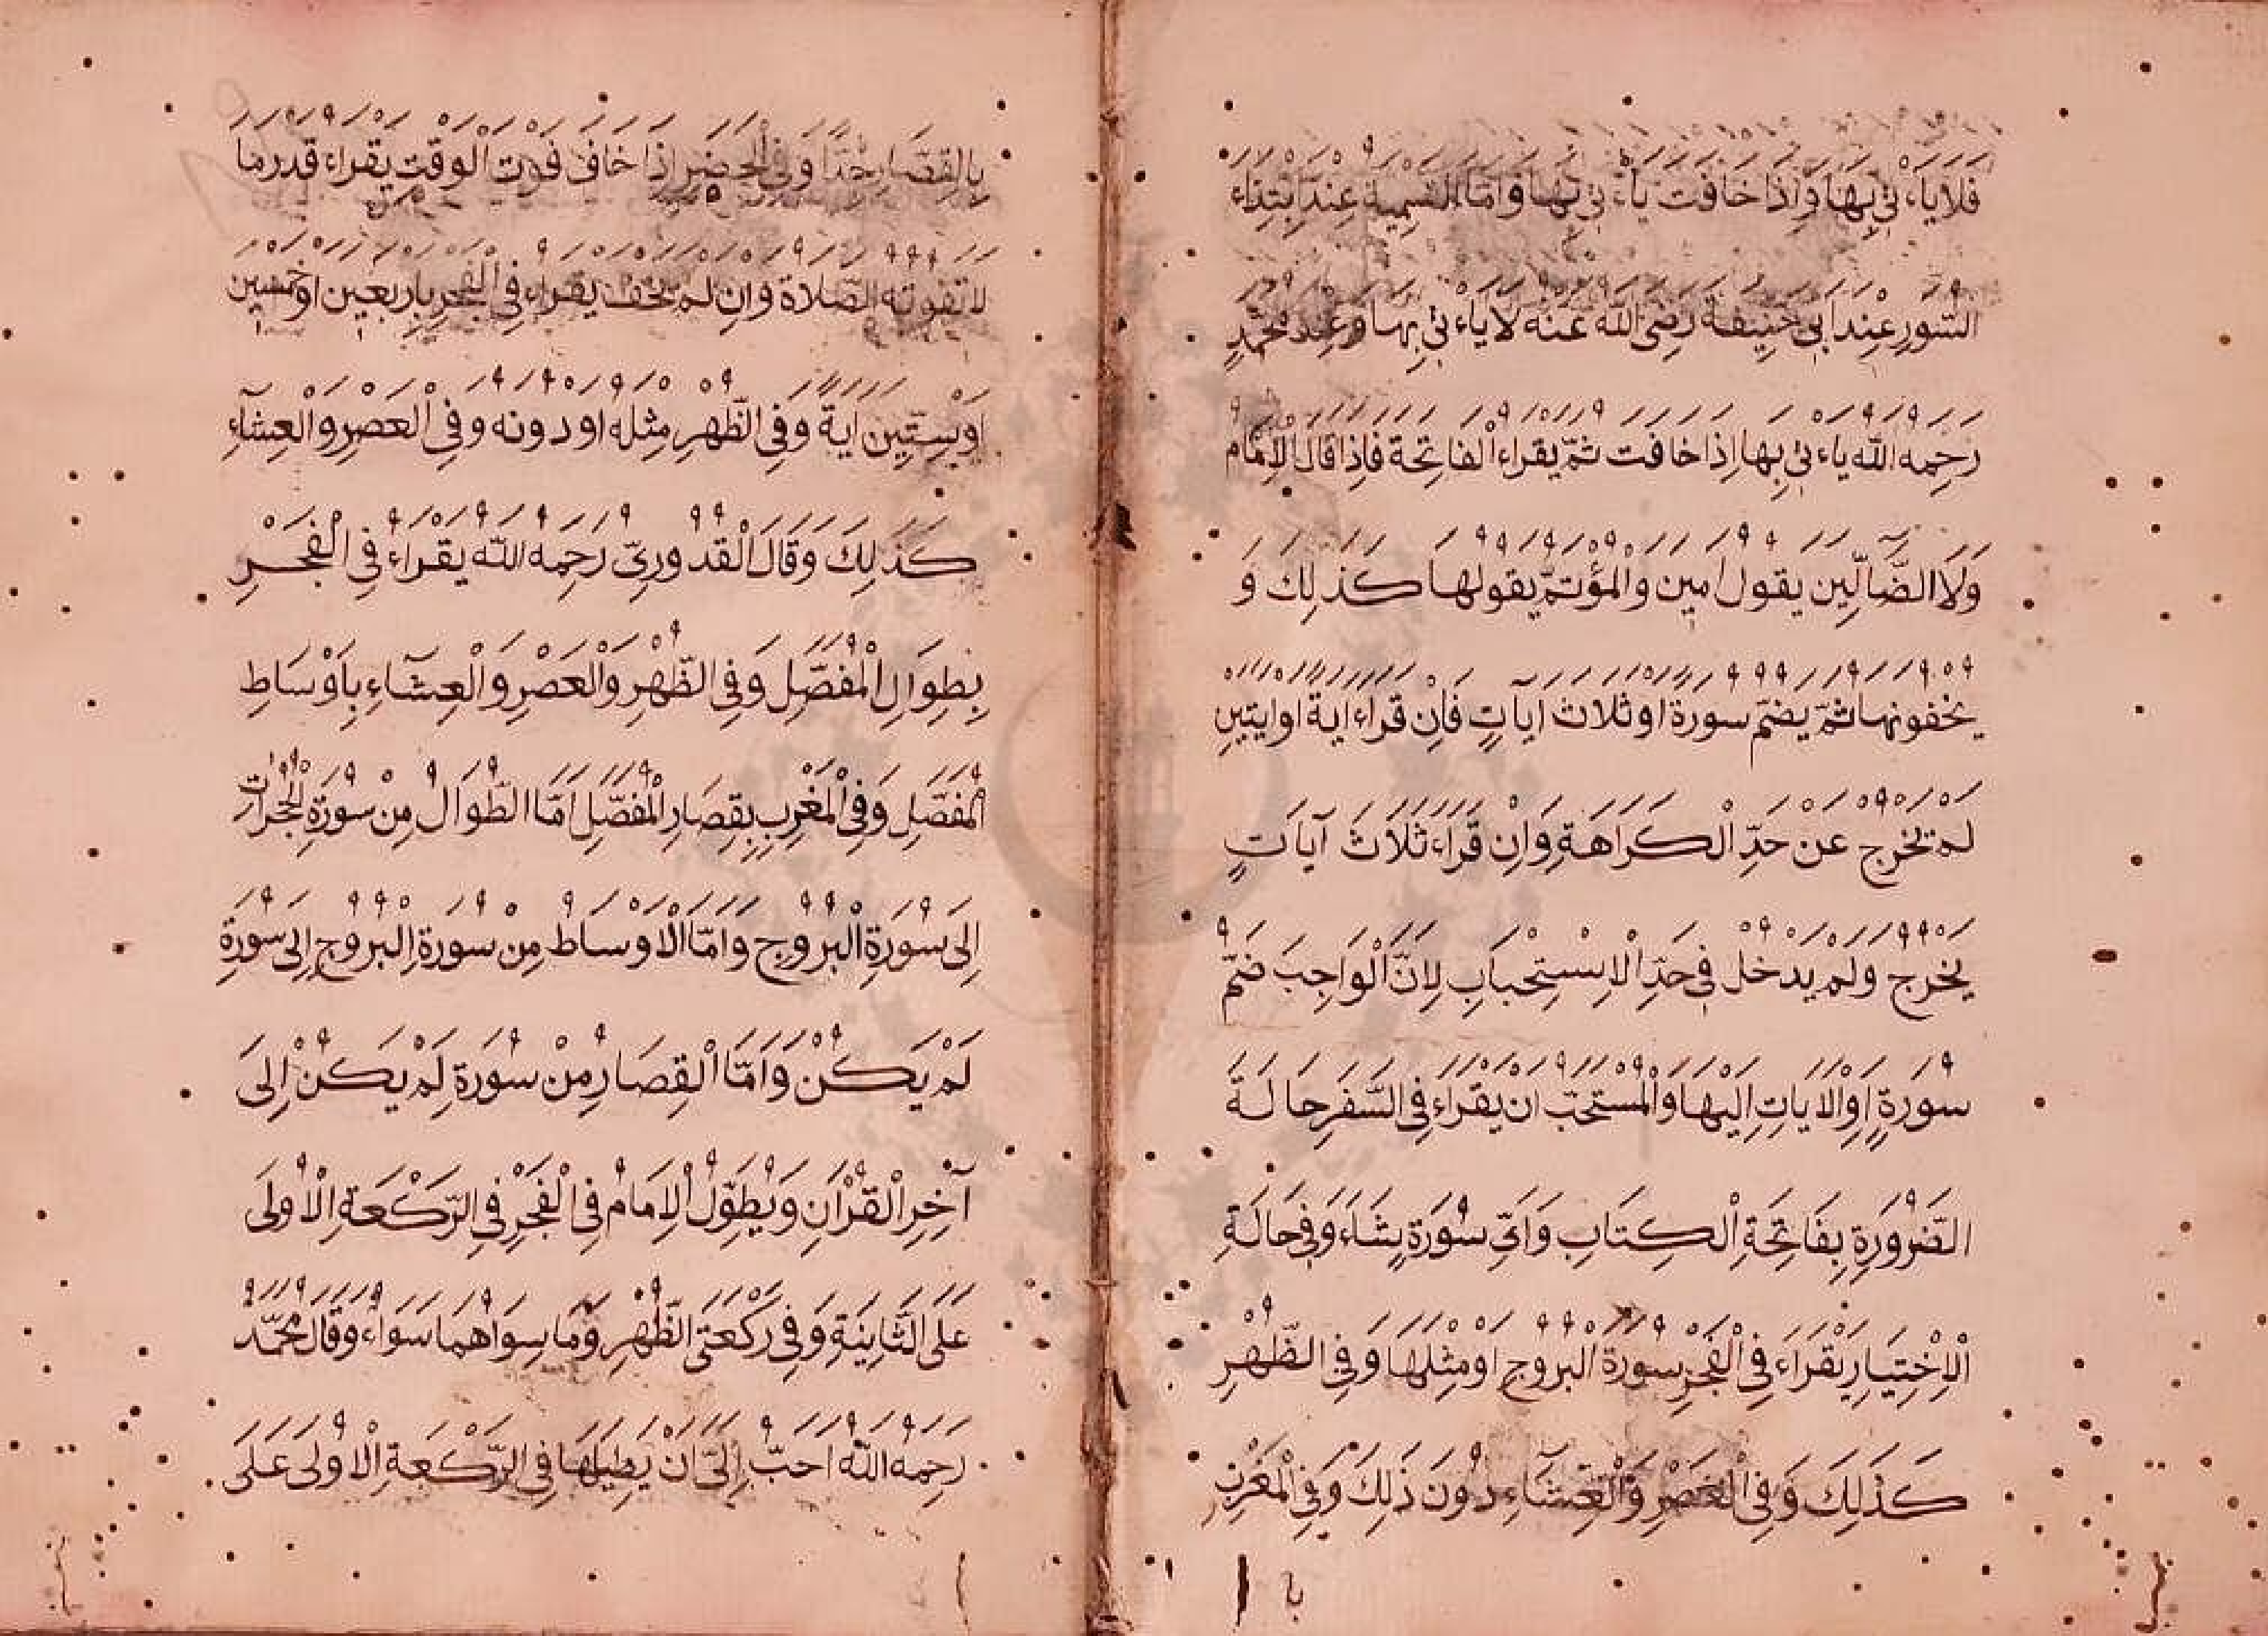 فلا ياءتي بها واذا خافت ياءتي بها واما التسمية عند ابتداء
السور عند ابي حنيفة رضى الله عنه لا ياءتي بها وعند محمد
رحمه الله ياءتي بها اذا خافت ثم يقراء الفاتحة فاذا قال الامام
ولا الضالين يقول امين والمؤتم يقولها كذلك و
يخفونها ثم يضم سورة او ثلاث ايات فان قراء اية او ايتين
لم تخرج عن حد الكراهة وان قراء ثلاث آيات
يخرج ولم يدخل في حد الاستحباب لان الواجب ضم
سورة او الايات اليها والمستحب ان يقراء في السفر حالة
الضرورة بفاتحة الكتاب واي سورة يشاء وفي حالة
الاختيار يقراء في الفجر سورة البروج او مثلها وفي الظهر
كذلك وفي العصر والعشاء دون ذلك وفي المغرب
با
بالقصار جدا وفي الحضر اذا خاف فوت الوقت يقراء قدر ما
لا تفوته الصلاة وان لم يخف يقراء في الفجر باربعين او خمسين
او بستين اية وفي الظهر مثله او دونه وفي العصر والعشاء
كذلك وقال القدوري رحمه الله يقراء في الفجر
بطوال المفصل وفي الظهر والعصر والعشاء باوساط
المفصل وفي المغرب بقصار المفصل اما الطوال من سورة الحجرات
الى سورة البروج واما الاوساط من سورة البروج الى سورة
لم يكن واما القصار من سورة لم يكن الى
آخر القرآن ويطول الامام في الفجر في الركعة الاولى
على الثانية وفي ركعتي الظهر وما سواهما سواء وقال محمد
رحمه الله احب الي ان يطيلها في الركعة الاولى على